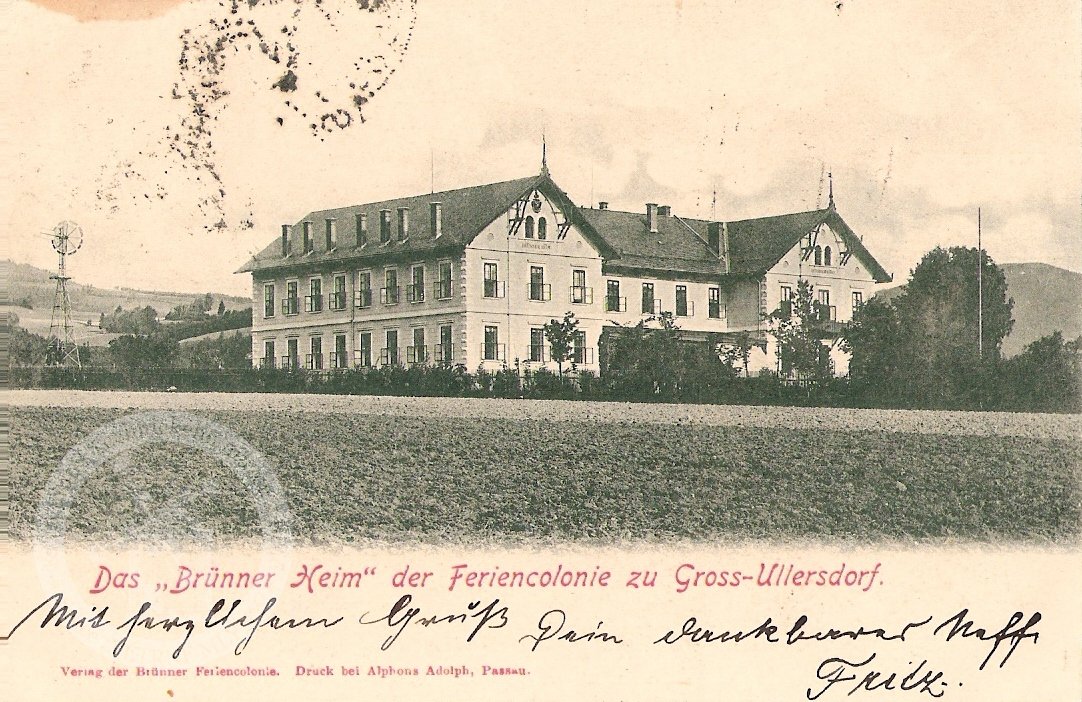 Das „Brünner Heim“ der Feriencolonie zu Gross-Ullersdorf.
Mit herzlichem Gruß Dein dankbarer Neffe
Fritz.
Verlag der Brünner Feriencolonie. Druck bei Alphons Adolph, Passau.